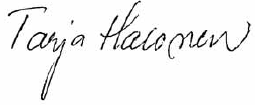 Tarja Halonen